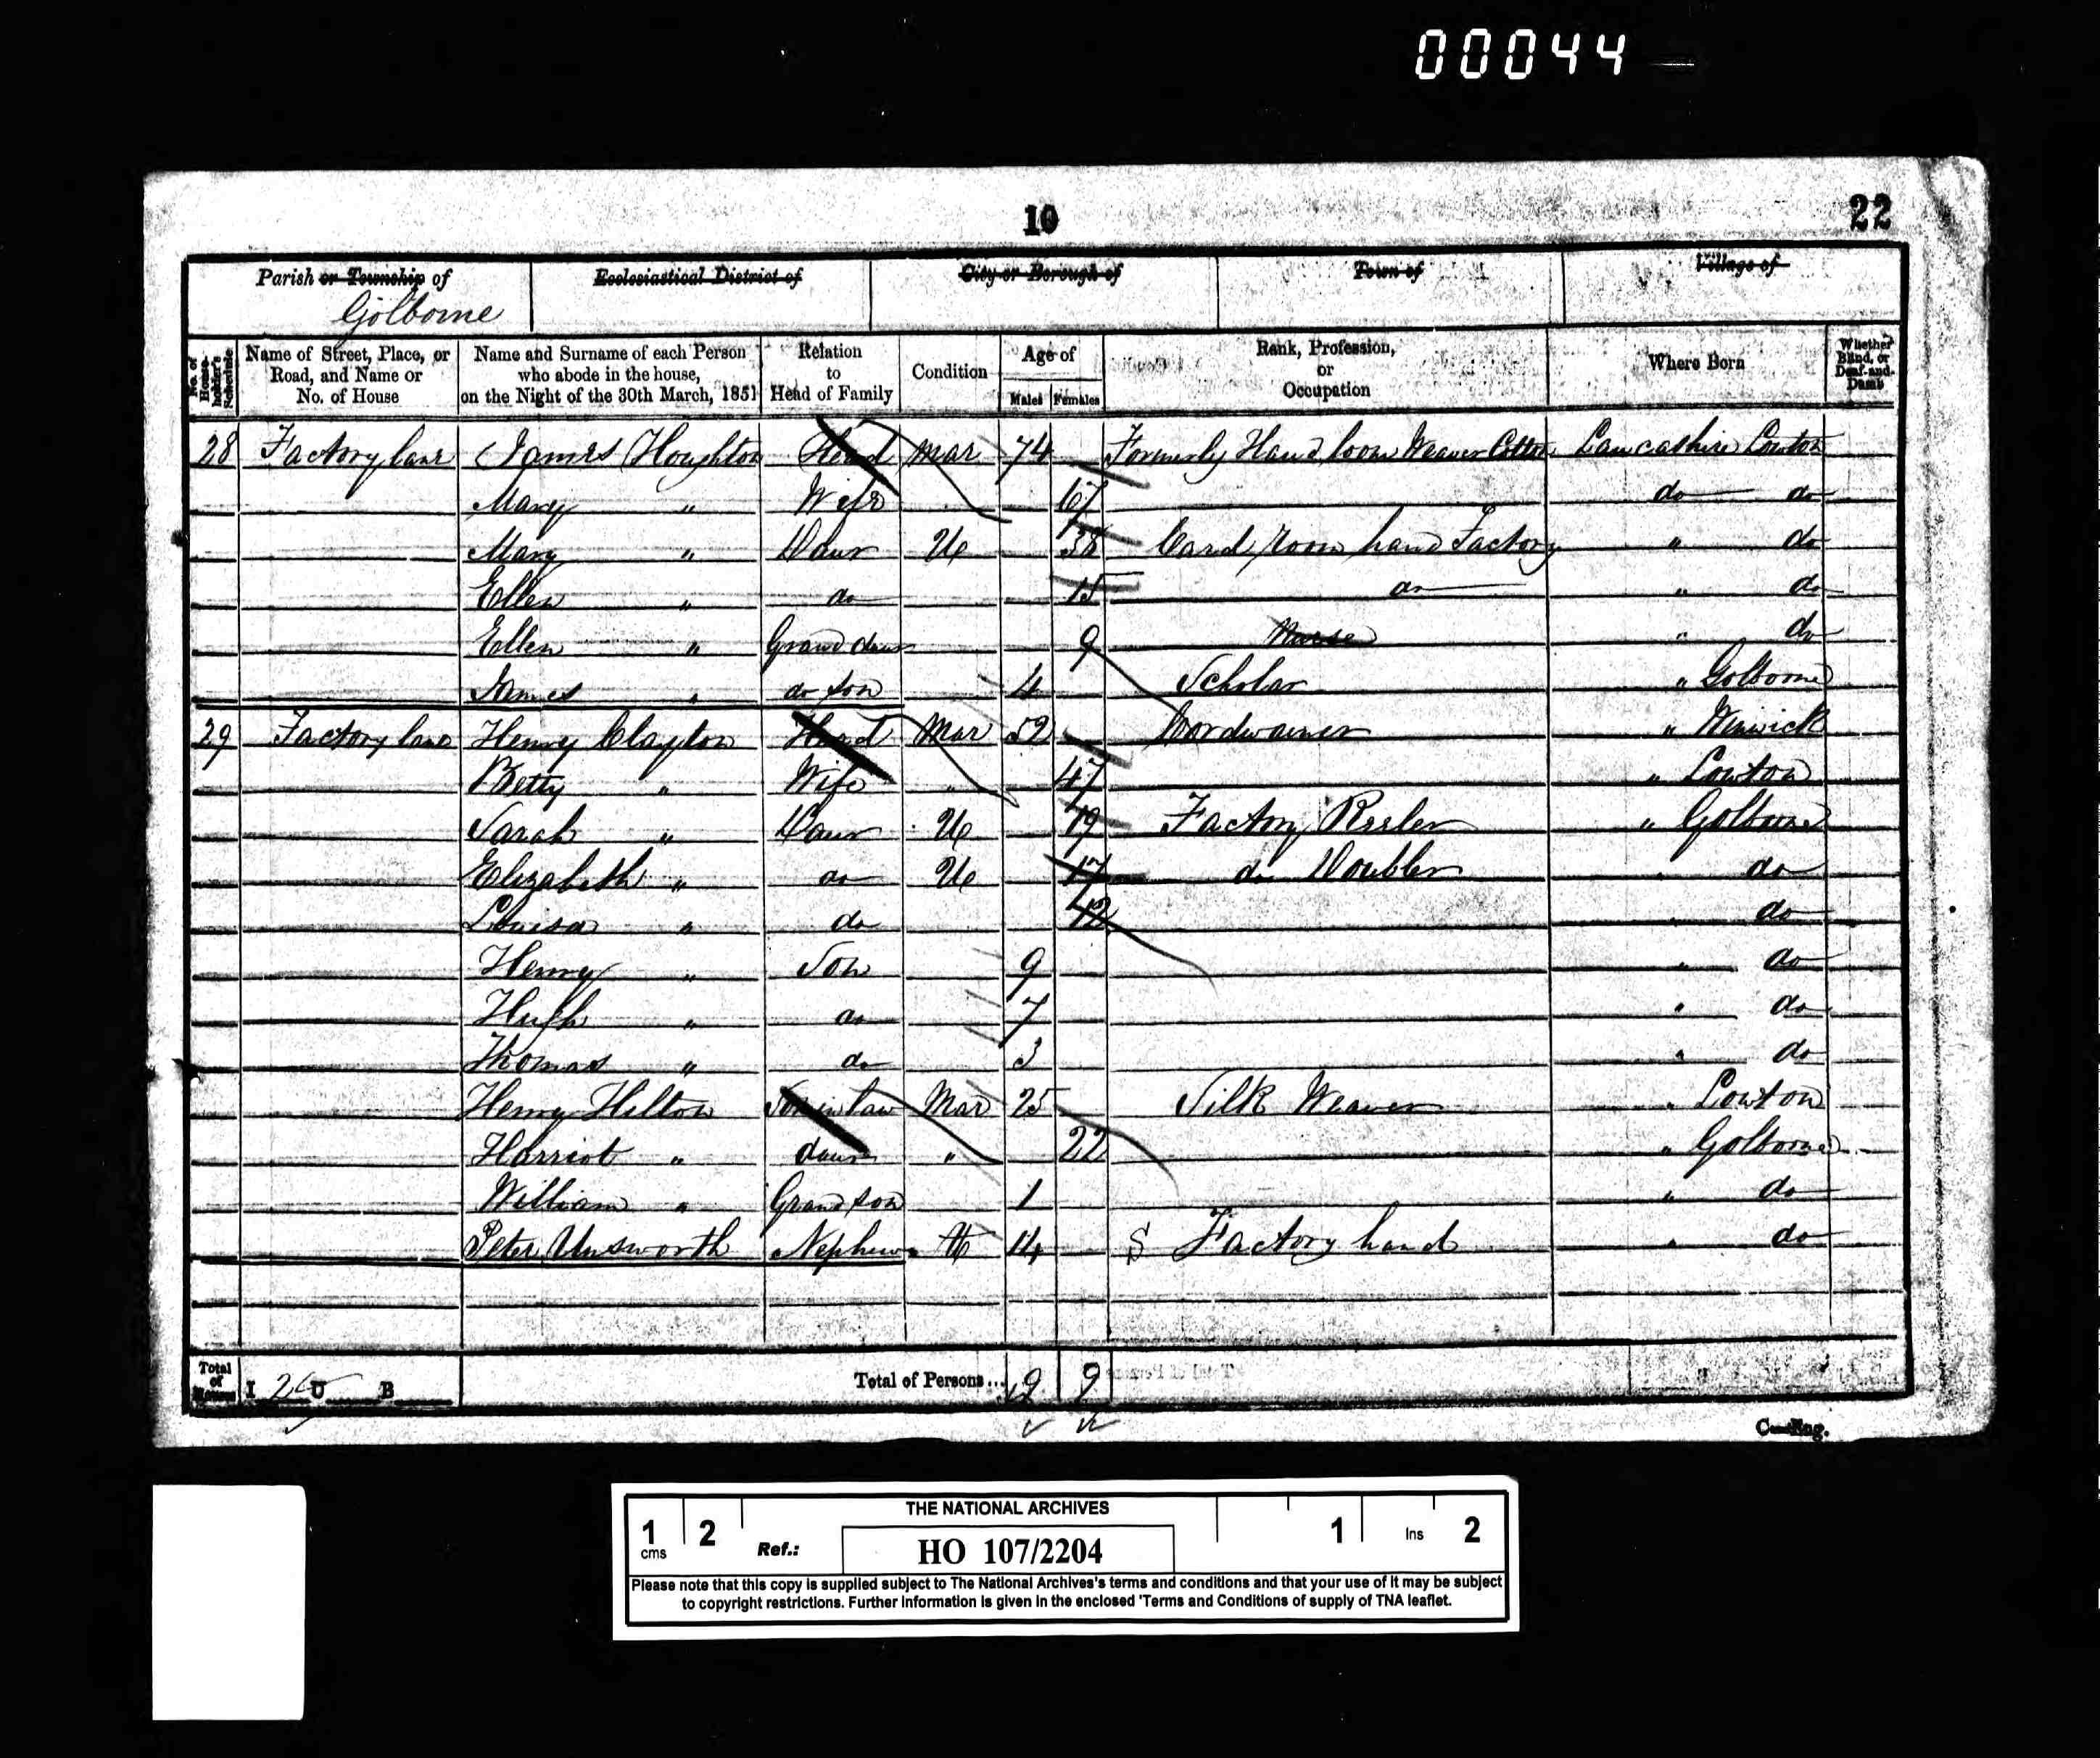 00044
10
22
Parish or Township of
Golborne
Ecclesiastical District of
City or Borough of
Town of
Village of
No. of House-holder's Schedule
Name of Street, Place, or Road, and Name or No. of House
Name and Surname of each Person who abode in the house, on the Night of the 30th March, 1851
Relation to Head of Family
Condition
Age of
Males Females
Rank, Profession, or Occupation
Where Born
Whether Blind, or Deaf-and-Dumb
28 Factory lane James Houghton Head Mar 74 Formerly Hand loom Weaver Cotton Lancashire Lowton
Mary " Wife 67 do do
Mary " Daur U 38 Card room hand Factory " do
Ellen " do 15 do " do
Ellen " Grand daur 9 Nurse " do
James " do son 4 Scholar " Golborne
29 Factory lane Henry Clayton Head Mar 52 Cordwainer " Winwick
Betty " Wife " 47 " Lowton
Sarah " Daur U 19 Factory Reeler " Golborne
Elizabeth " do U 17 do Doubler " do
Louisa " do 12 " do
Henry " Son 9 " do
Hugh " do 7 " do
Thomas " do 3 " do
Henry Hilton Son in law Mar 25 Silk Weaver " Lowton
Harriot " daur " 22 " Golborne
William " Grand son 1 " do
Peter Unsworth Nephew U 14 Factory hand " do
Total of Houses I 2 U B Total of Persons... 9 9
THE NATIONAL ARCHIVES
1 cms 2 Ref.: HO 107/2204 1 Ins 2
Please note that this copy is supplied subject to The National Archives's terms and conditions and that your use of it may be subject
to copyright restrictions. Further Information is given in the enclosed 'Terms and Conditions of supply of TNA leaflet.